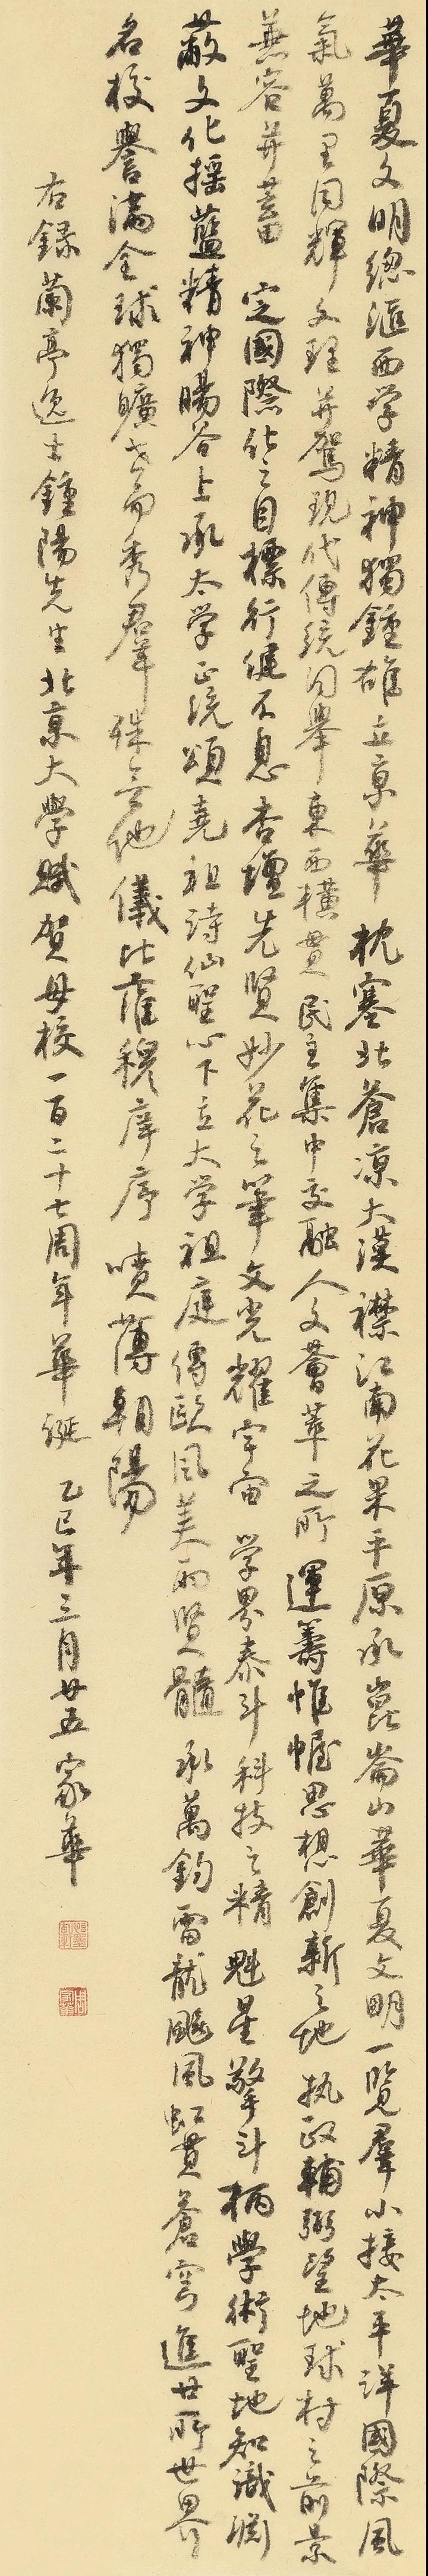 華夏文明總滙西学精神獨鍾雄立京華枕塞北蒼凉大漠襟江南花果平原承崑崙山華夏文明一覽羣小接太平洋國際風
氣萬里同輝文理并駕現代傳統同舉東西橫貫民主集中交融人文薈萃之所運籌惟幄思想創新之地执政輔弼望地球村之前景
兼容并蓄定國際化之目標行健不息杏壇先賢妙花之筆文光耀宇宙学界泰斗科技之精魁星擎斗柄學術聖地知識淵
藪文化摇藍精神暘谷上承太学正統頌堯祖詩仙聖心下立大学祖庭傳歐風美雨賢髓承萬鈞雷龍颺風虹貫蒼穹進廿所世界
名校譽滿全球獨曠世而秀羣殊無他儀比雍穆庠序噴薄朝陽
右録蘭亭逸士鍾陽先生北京大學賦贺母校一百二十七周年華誕乙巳年三月廿五家華